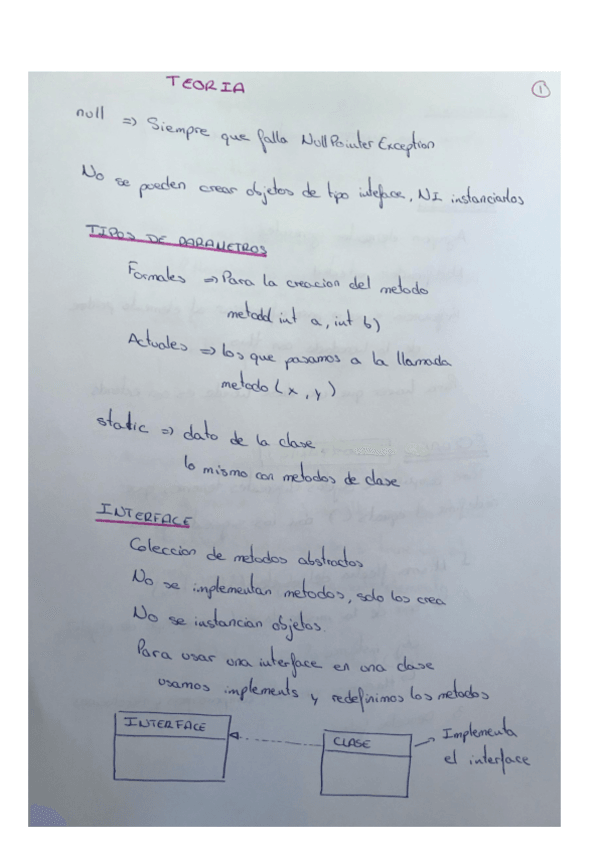 TEORIA
1
null => Siempre que falla NullPointerException
No se pueden crear objetos de tipo inteface, NI instanciarlos
TIPOS DE PARAMETROS
Formales => Para la creacion del metodo
metodo( int a, int b)
Actuales => los que pasamos a la llamada
metodo (x, y)
static => dato de la clase
lo mismo con metodos de clase
INTERFACE
Coleccion de metodos abstractos
No se implementan metodos, solo los crea
No se instancian objetos.
Para usar una interface en una clase
usamos implements y redefinimos los metodos
INTERFACE
CLASE
Implementa
el interface